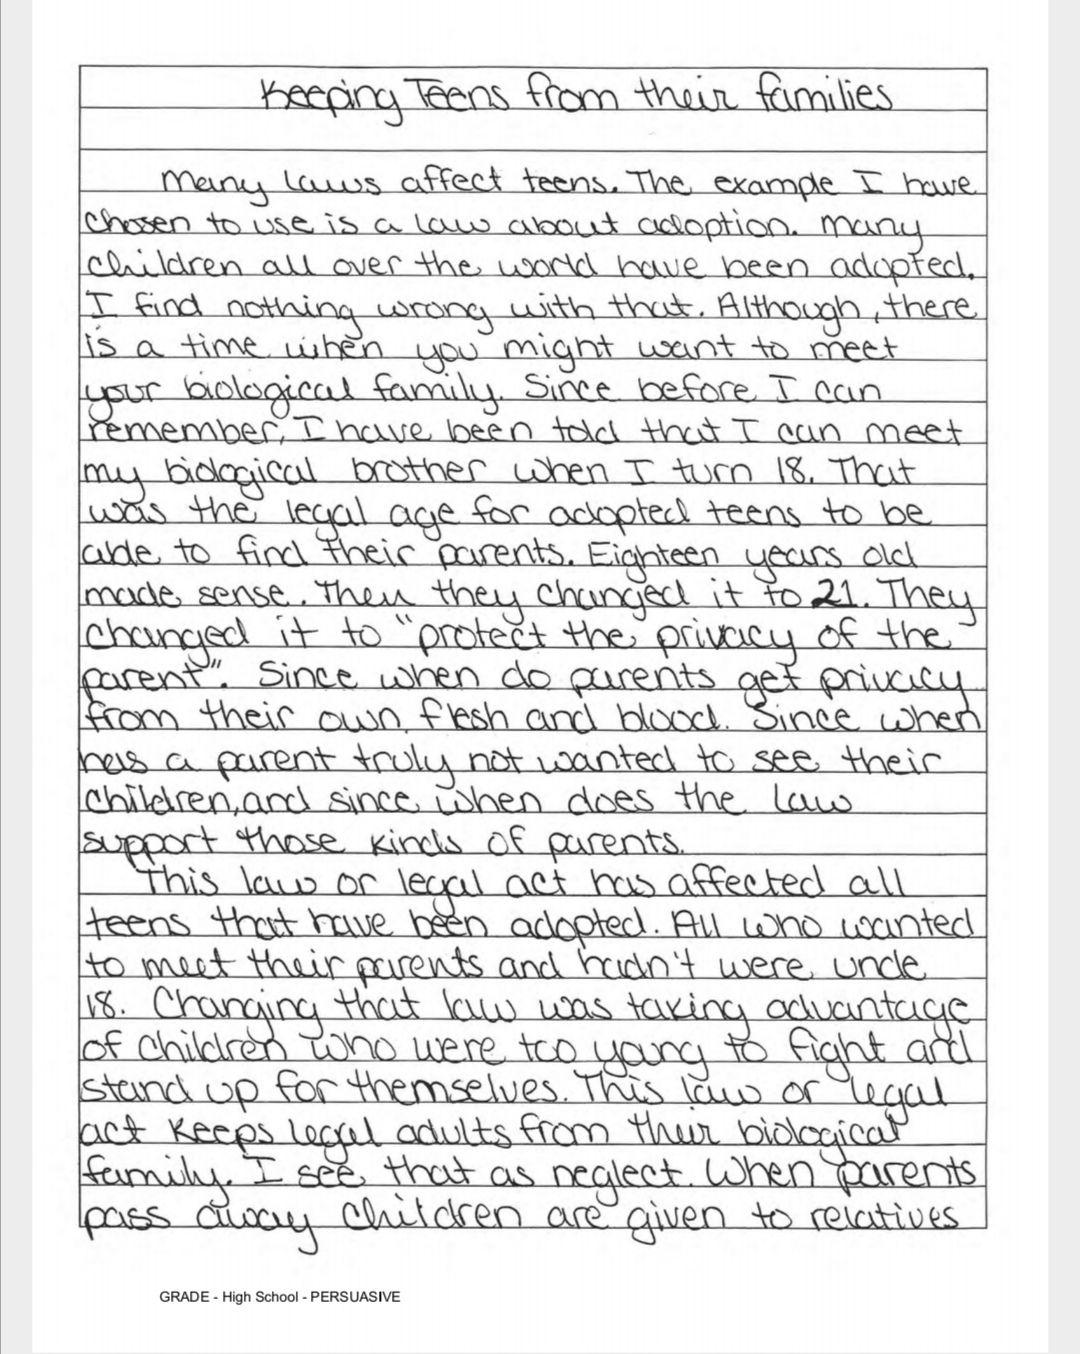 Keeping Teens from their families
Many laws affect teens. The example I have
chosen to use is a law about adoption. Many
children all over the world have been adopted.
I find nothing wrong with that. Although, there
is a time when you might want to meet
your biological family. Since before I can
remember, I have been told that I can meet
my biological brother when I turn 18. That
was the legal age for adopted teens to be
able to find their parents. Eighteen years old
made sense. Then they changed it to 21. They
changed it to "protect the privacy of the
parent". Since when do parents get privacy
from their own flesh and blood. Since when
has a parent truly not wanted to see their
children, and since when does the law
support those kinds of parents.
This law or legal act has affected all
teens that have been adopted. All who wanted
to meet their parents and hadn't were unde
18. Changing that law was taking advantage
of children who were too young to fight and
stand up for themselves. This law or legal
act keeps legal adults from their biological
family. I see that as neglect. When parents
pass away children are given to relatives
GRADE - High School - PERSUASIVE